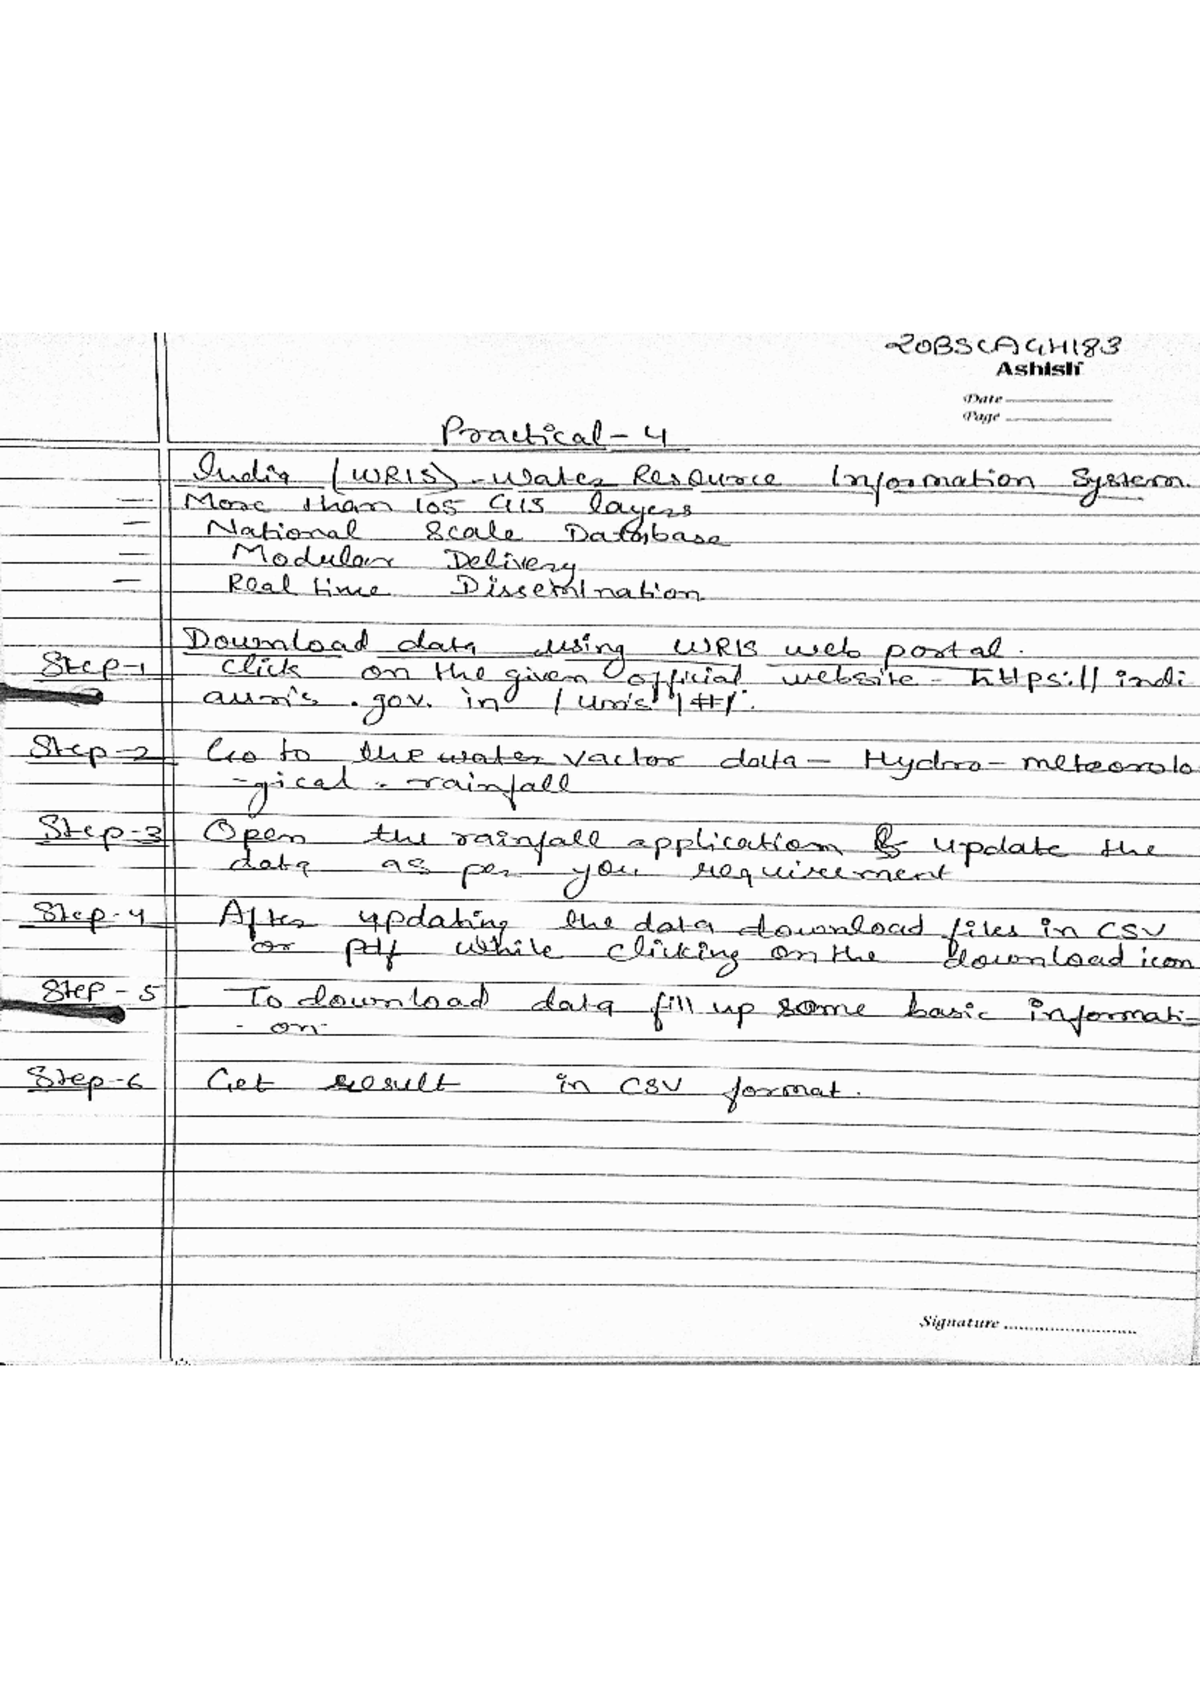 20BSCAGH183
Ashish
Date
Page
Practical - 4
India (WRIS) - Water Resource Information System.
- More than 105 GIS layers
- National Scale Database
- Modular Delivery
- Real time Dissemination
Download data using WRIS web portal.
Step-1 Click on the given official website - https:// indi
awris .gov. in /wris/#/.
Step-2 Go to the water vactor data - Hydro - meteorolo
-gical - rainfall
Step-3 Open the rainfall application & update the
data as per you requirement
Step-4 After updating the data download files in CSV
or pdf while clicking on the download icon
Step - 5 To download data fill up some basic informati-
- on.
Step-6 Get result in CSV format.
Signature ..........................